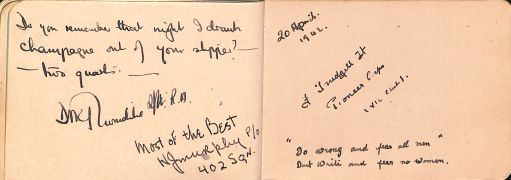 Do you remember that night I drank
champagne out of your slipper? —
— two quarts. —
R.A.
Most of the Best
P/O
402 Sqn.
20 April.
1942.
Pioneer Corps
"Do wrong and fear all men"
Dont Write and fear no women.